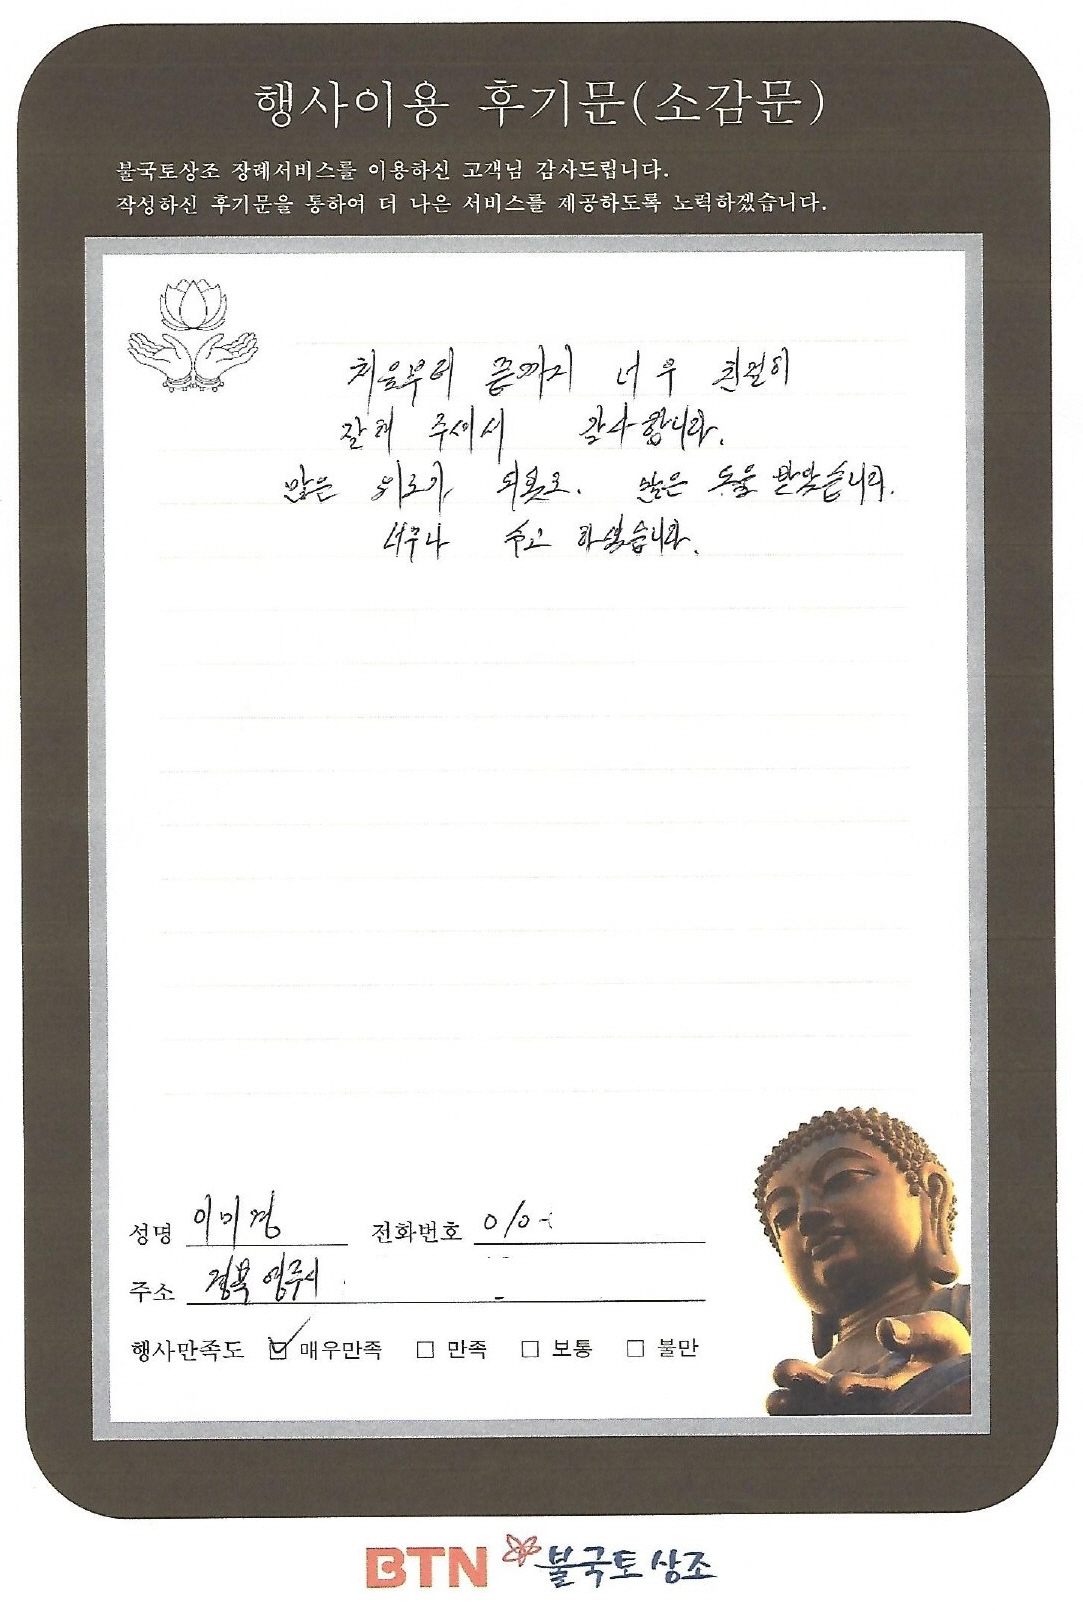 행사이용 후기문(소감문)
불국토상조 장례서비스를 이용하신 고객님 감사드립니다.
작성하신 후기문을 통하여 더 나은 서비스를 제공하도록 노력하겠습니다.
처음부터 끝까지 너무 친절히
잘 해 주셔서 감사합니다.
많은 위로가 되었고. 많은 도움 받았습니다.
너무나 수고 하셨습니다.
성명 이미경 전화번호 010-
주소 경북 영주시
행사만족도 ☑ 매우만족 □ 만족 □ 보통 □ 불만
BTN 불국토상조